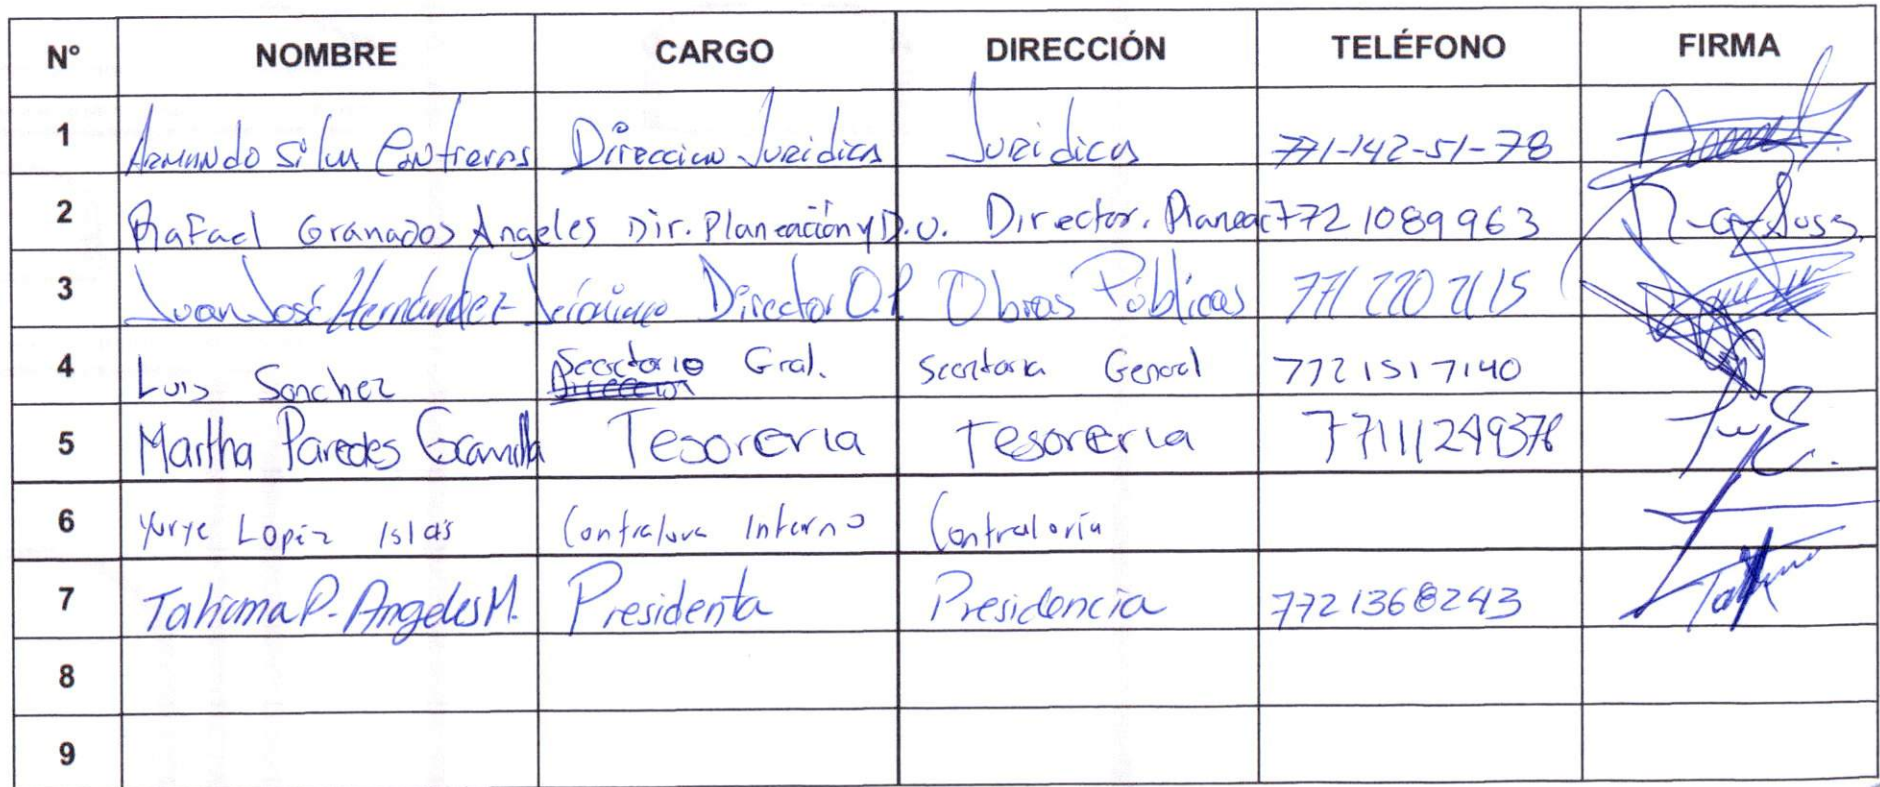 N° NOMBRE CARGO DIRECCIÓN TELÉFONO FIRMA
1 Armando Silva Contreras Direccion Juridica Juridica 771-142-51-78
2 Rafael Granados Angeles Dir. Planeación y D.U. Director. Planeac 772 1089963
3 Juan José Hernández Jerónimo Director O.P. Obras Públicas 771 220 2115
4 Luis Sanchez Secretario Gral. Secretaria General 7721517140
5 Martha Paredes Tesoreria Tesoreria
6 Yurye Lopez Islas Contralora Interno Contraloría
7 P. Angeles M. Presidenta Presidencia 7721368243
8
9